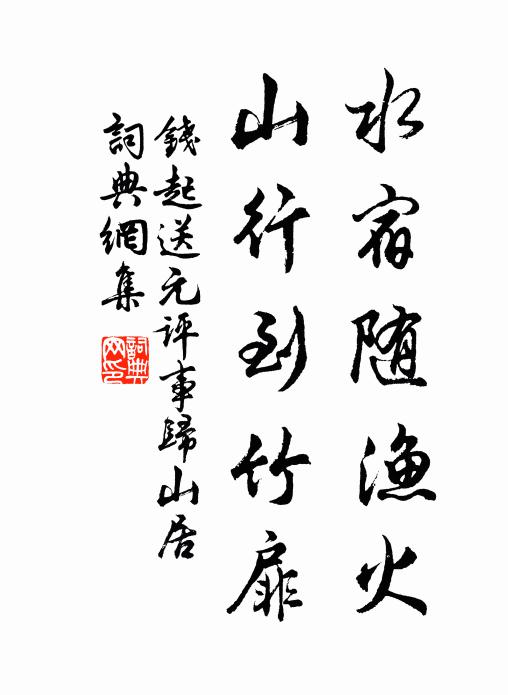 水宿随漁火
山行到竹扉
錢起送元評事歸山居
詞典網集
詞典網印